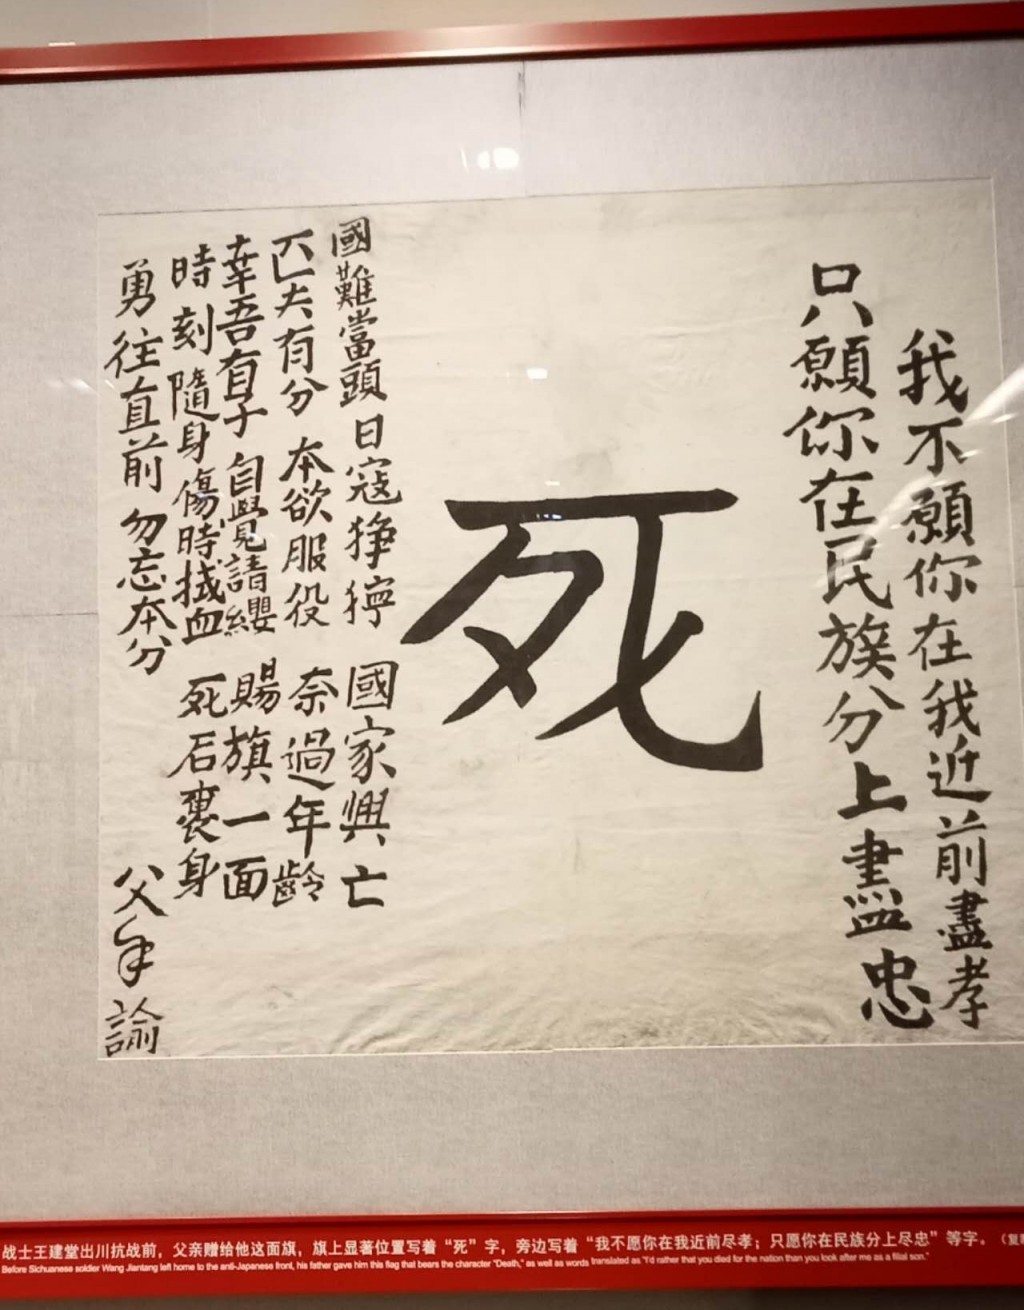 我不願你在我近前盡孝
只願你在民族分上盡忠
死
國難當頭 日寇猙獰 國家興亡
匹夫有分 本欲服役 奈過年齡
幸吾有子 自覺請纓 賜旗一面
時刻隨身 傷時拭血 死後裹身
勇往直前 勿忘本分
父手諭
战士王建堂出川抗战前，父亲赠给他这面旗，旗上显著位置写着“死”字，旁边写着“我不愿你在我近前尽孝；只愿你在民族分上尽忠”等字。（复
Before Sichuanese soldier Wang Jiantang left home to the anti-Japanese front, his father gave him this flag that bears the character "Death," as well as words translated as "I'd rather that you died for the nation than you look after me as a filial son."